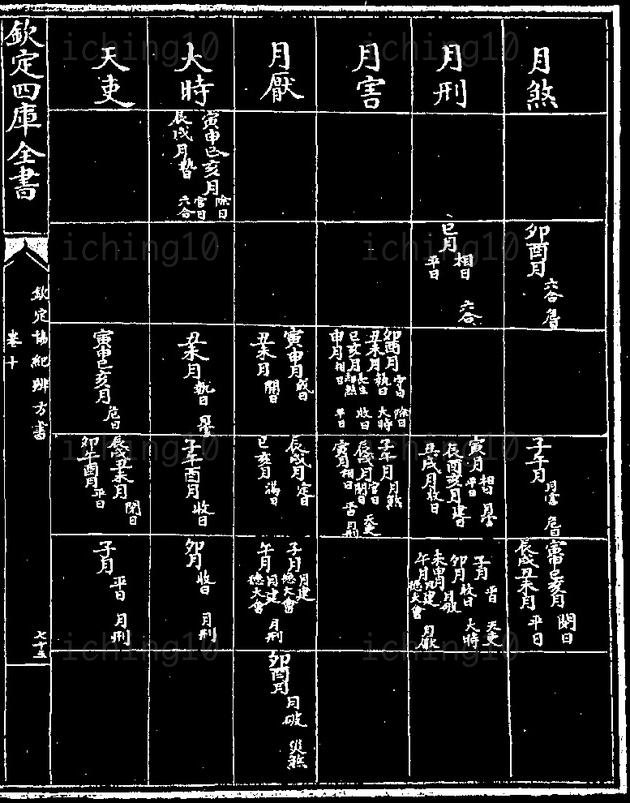 月煞
月刑
月害
月厭
大時
天吏
寅申巳亥月
除日
官日
辰戌月執日
六合
卯酉月
六合
危日
巳月
相日
平日
六合
卯酉月
守日
除日
丑未月執日
大時
巳亥月
長生
收日
申月相日
平日
寅申月成日
丑未月
開日
丑未月
執日
月害
寅申巳亥月
危日
子午月
月害
危日
寅月
相日
月害
平日
辰酉亥月建日
丑戌月收日
子午月月煞
辰戌月官日
天吏
寅月相日
月刑
辰戌月定日
巳亥月
滿日
子午酉月
收日
辰戌丑未月
閉日
卯午酉月
平日
寅申巳亥月
開日
辰戌丑未月
平日
子月
平日
天吏
卯月
收日
大時
未申月
月破
午月月建
月厭
子月月建
午月月建
月刑
卯月
收日
月刑
子月
平日
月刑
卯酉月
月破
災煞
欽定四庫全書
欽定協紀辨方書
卷十
七十五
iching10
iching10
iching10
iching10
iching10
iching10
iching10
iching10